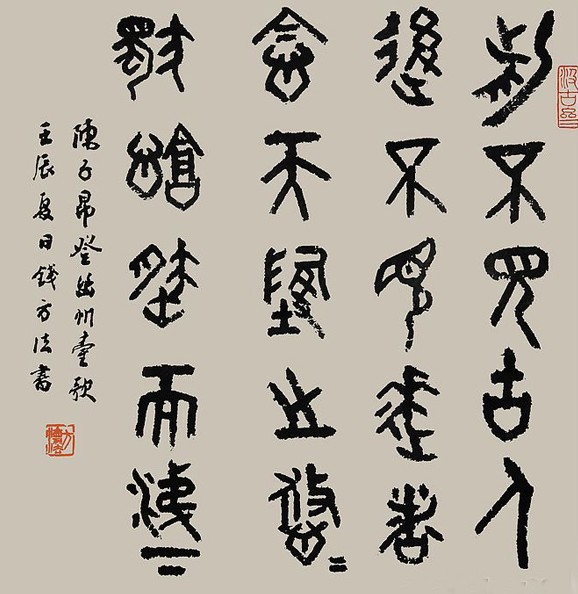 前不見古人
後不見來者
念天地之悠=
獨愴然而涕下
陳子昂登幽州臺歌
壬辰夏日錢方法書
汲古